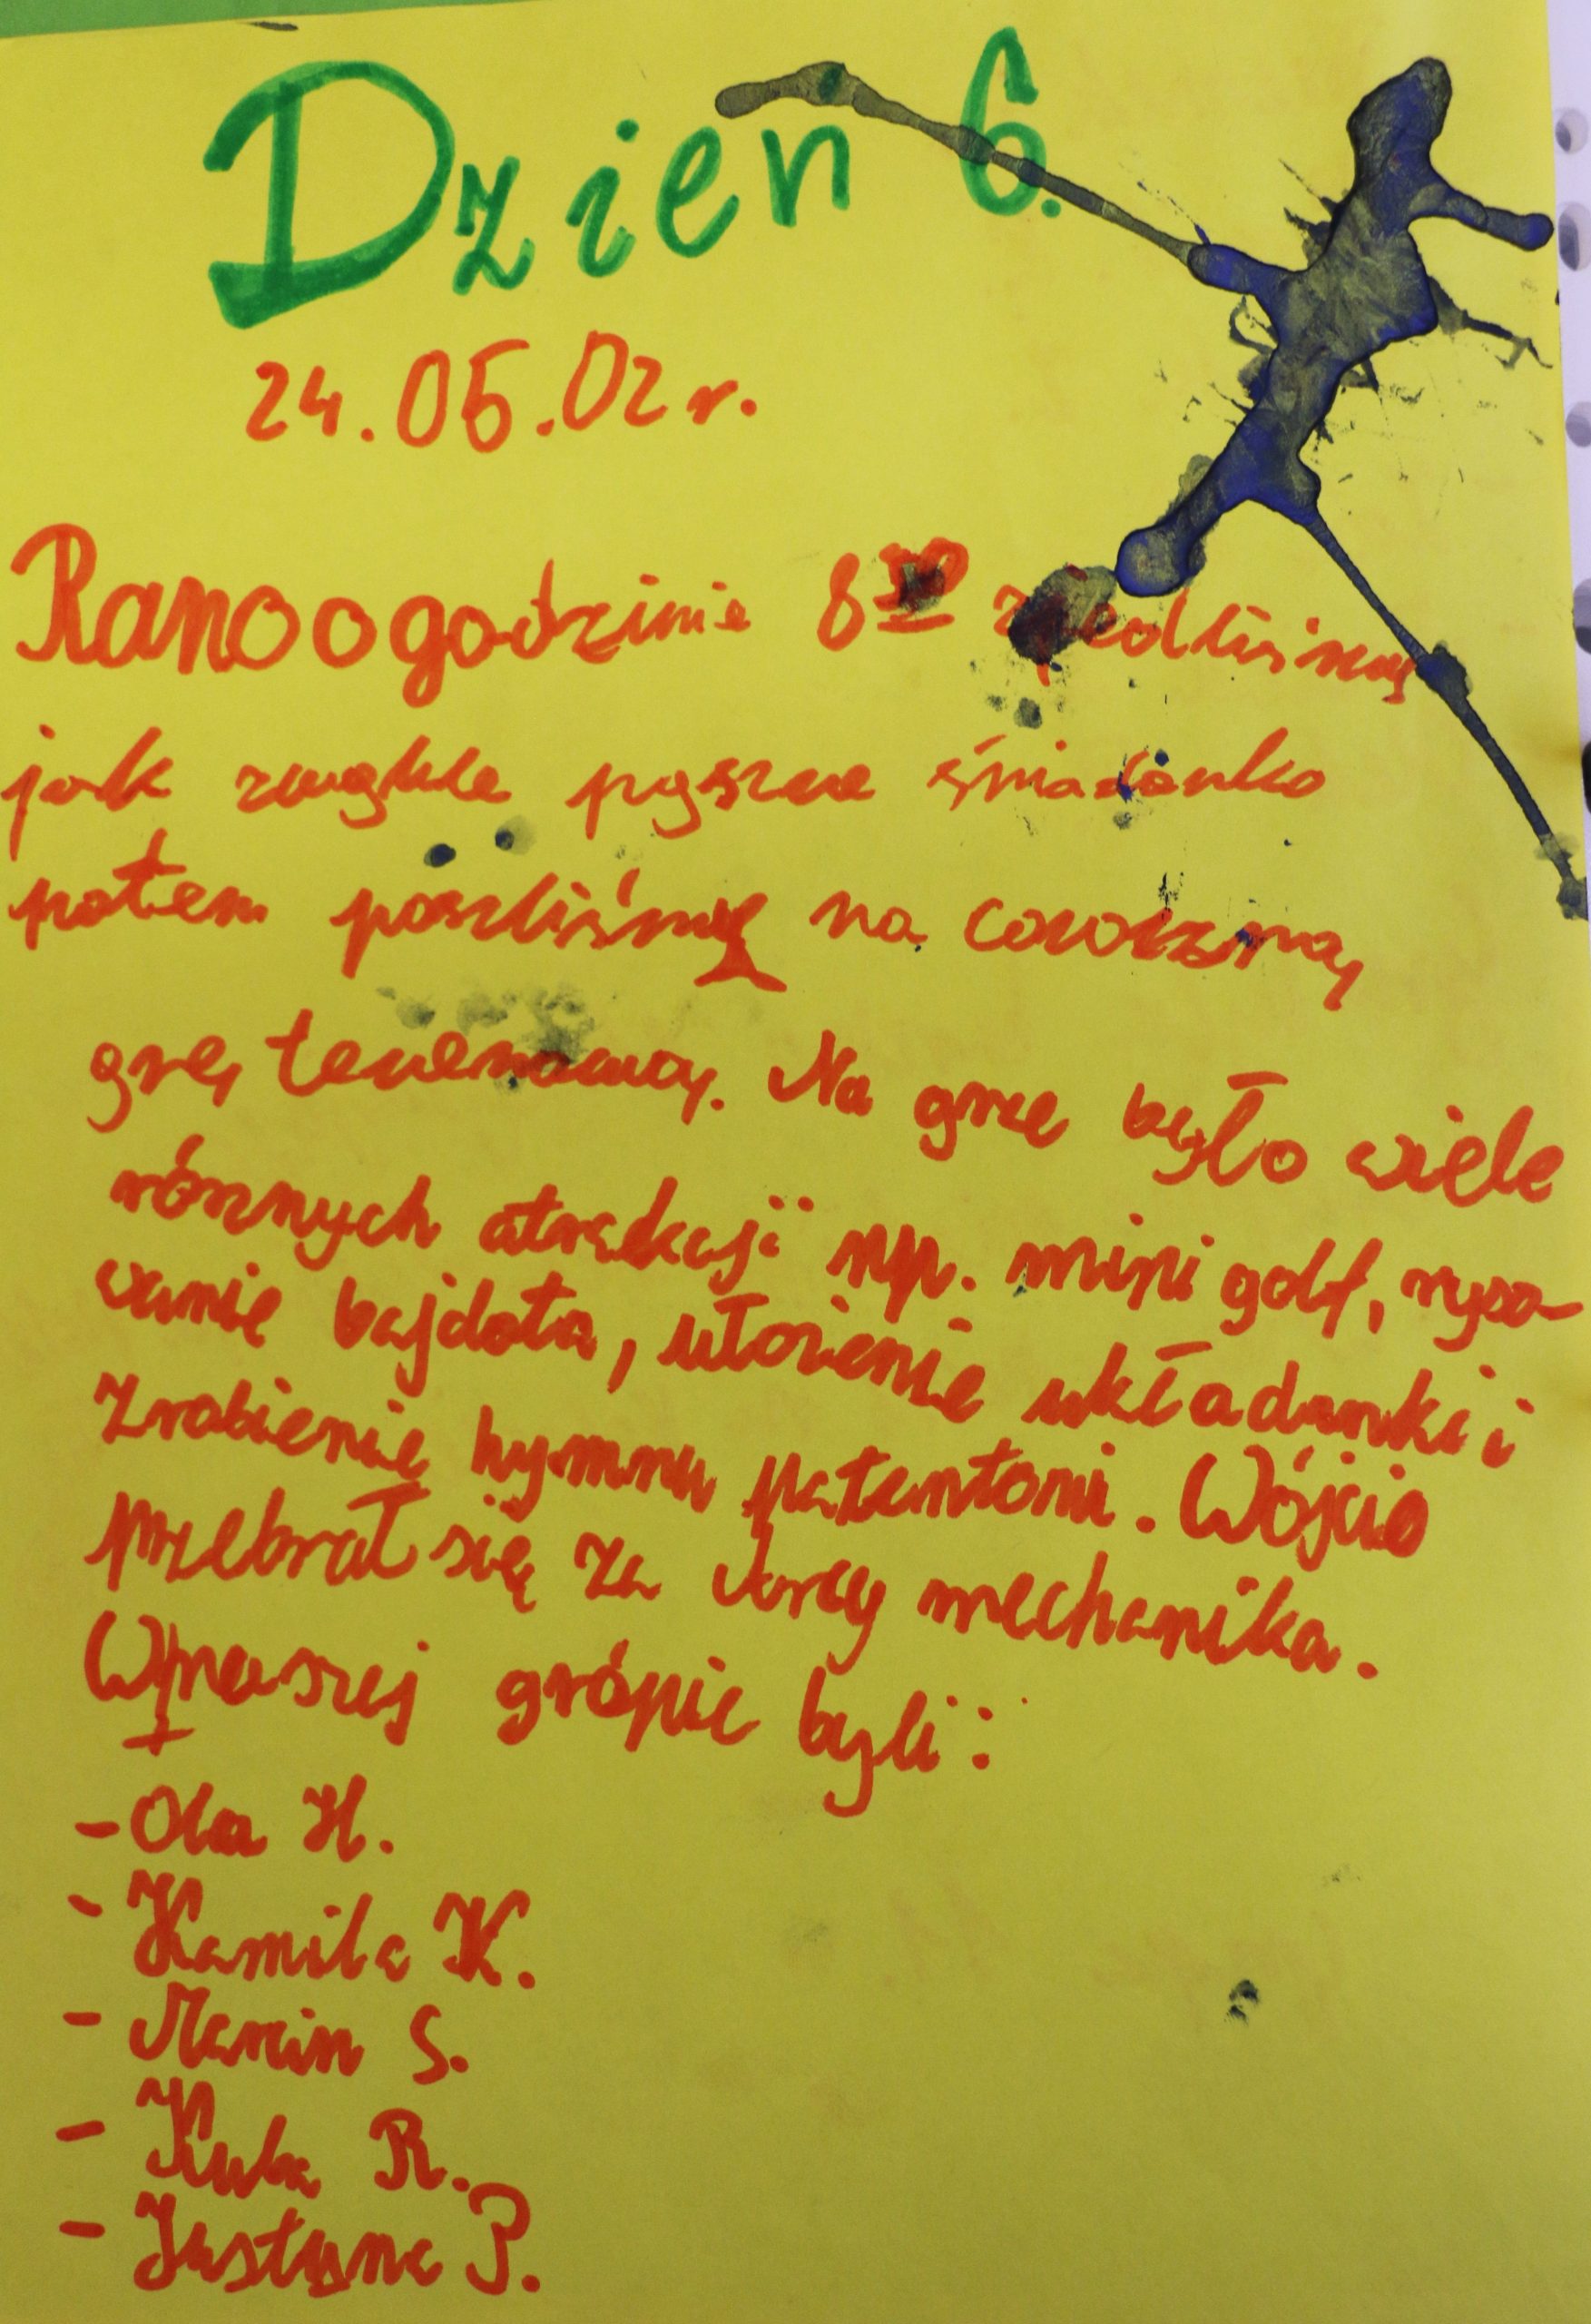 Dzien 6.
24.05.02 r.
Rano o godzinie 8 zjedliśmy
jak zwykle pyszne śniadanko
potem poszliśmy na coroczną
grę terenową. Na grze było wiele
róznych atrakcji np. mini golf, ryso-
wanie bajdota, ułozenie układanki i
Zrobienie hymnu patentoni. Wójcio
przebrał się za Jorcy mechanika.
W naszej grópie byli:
- Ola H.
- Kamila K.
- Marcin S.
- Kuba R.
- Justyna P.